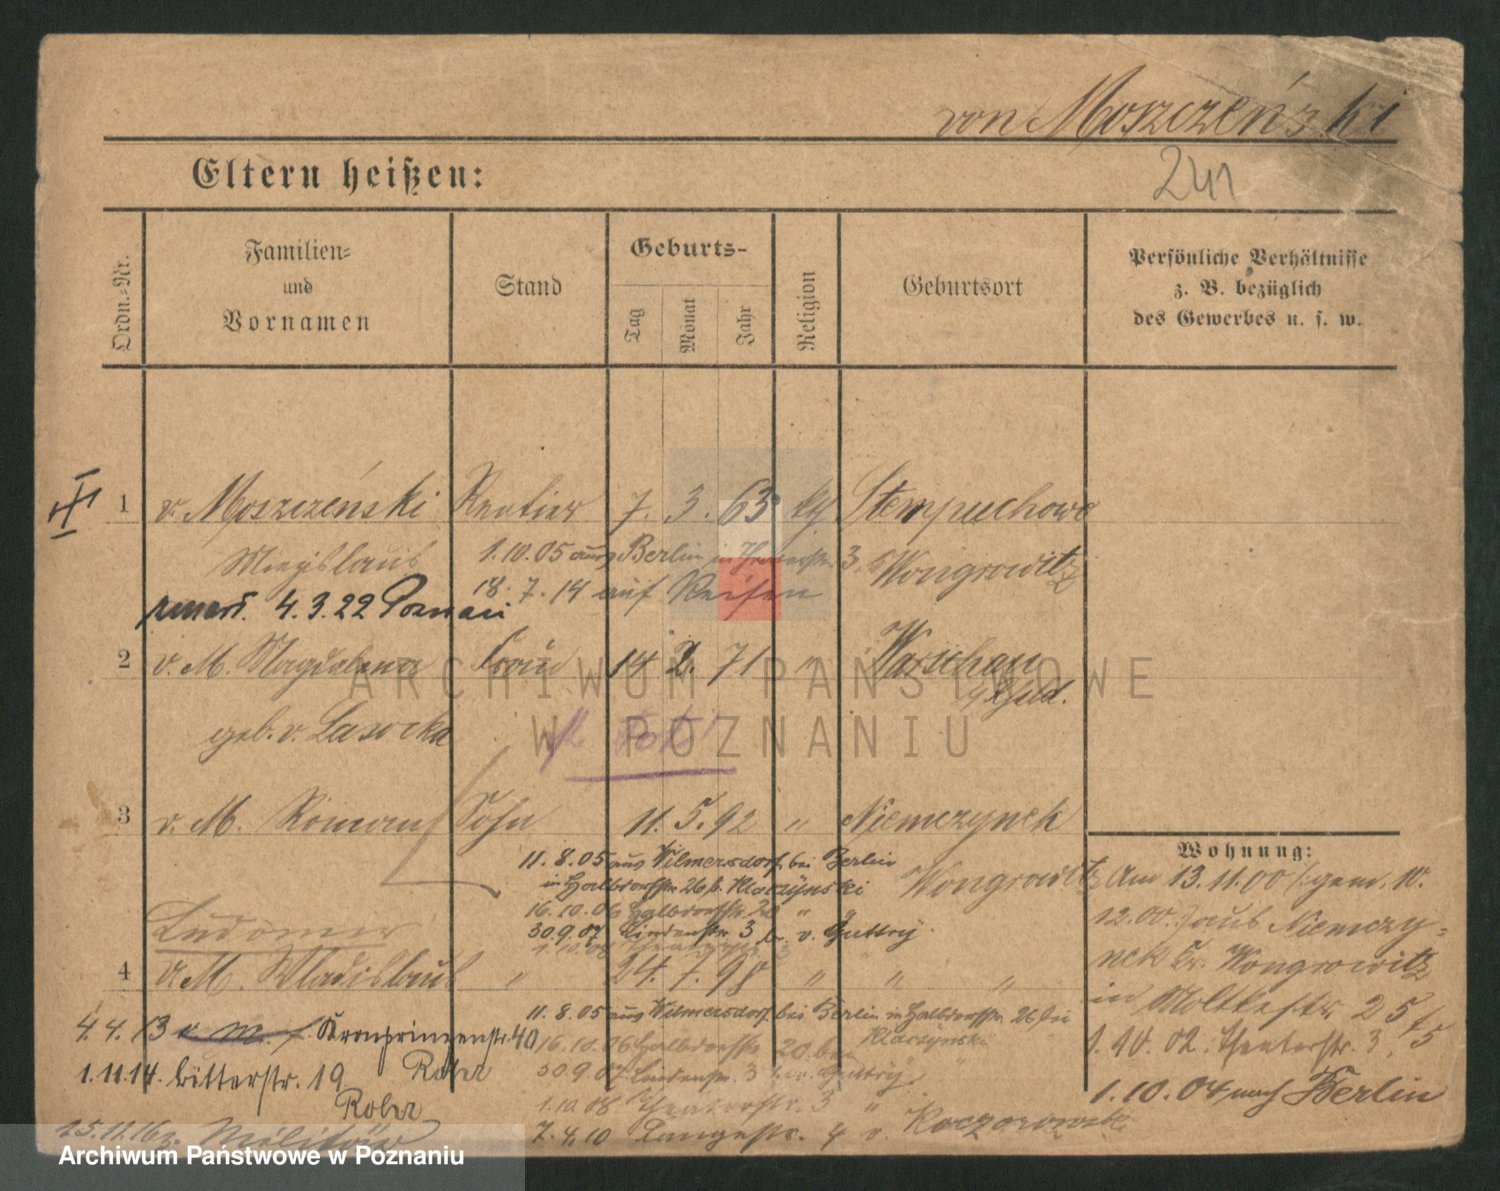 von Moszczeński
241
Eltern heißen:
Ordn.-Nr.
Familien-
und
Vornamen
Stand
Geburts-
Tag
Monat
Jahr
Religion
Geburtsort
Persönliche Verhältnisse
z. B. bezüglich
des Gewerbes u. s. w.
1 v. Moszczeński Rentier 7. 3. 63 Stempuchowo
1.10.05 aus Berlin in 3
Wongrowitz
18.7.14 auf Reisen
4.3.22 Poznań
2 v. M. Magdalena Frau 14 2. 71 " Warschau
geb. v. Lasocka
3 v. M. Roman Sohn 11. 5. 92 " Niemczynek
Wongrowitz
11.8.05 aus Wilmersdorf bei Berlin
in Halbdorfstr 26 b. Klaczynski
16.10.06 Halbdorfstr 20 "
30.9.07 Lindenstr 3 b. v. Guttry
Ludomir
4 v. M. Wladislaus " 24. 1. 98 " " "
11.8.05 aus Wilmersdorf bei Berlin in Halbdorfstr 26 bei
Klaczynski
16.10.06 Halbdorfstr 20 bei
30.9.07 Lindenstr. 3 bei v. Guttry
1.10.08 Theaterstr. 3 "
7.4.10 Langestr. 4 v.
4.4.13 v. M. Kronprinzenstr. 40
1.11.14. Ritterstr. 19
15.11.16 z. Militär
Wohnung:
Am 13.11.00 (: gem. 10.
12.00. :) aus Niemczy-
nek Kr. Wongrowitz
in Moltkestr 25
1.10.02. Theaterstr. 3
1.10.04 nach Berlin
ARCHIWUM PAŃSTWOWE
W POZNANIU
Archiwum Państwowe w Poznaniu